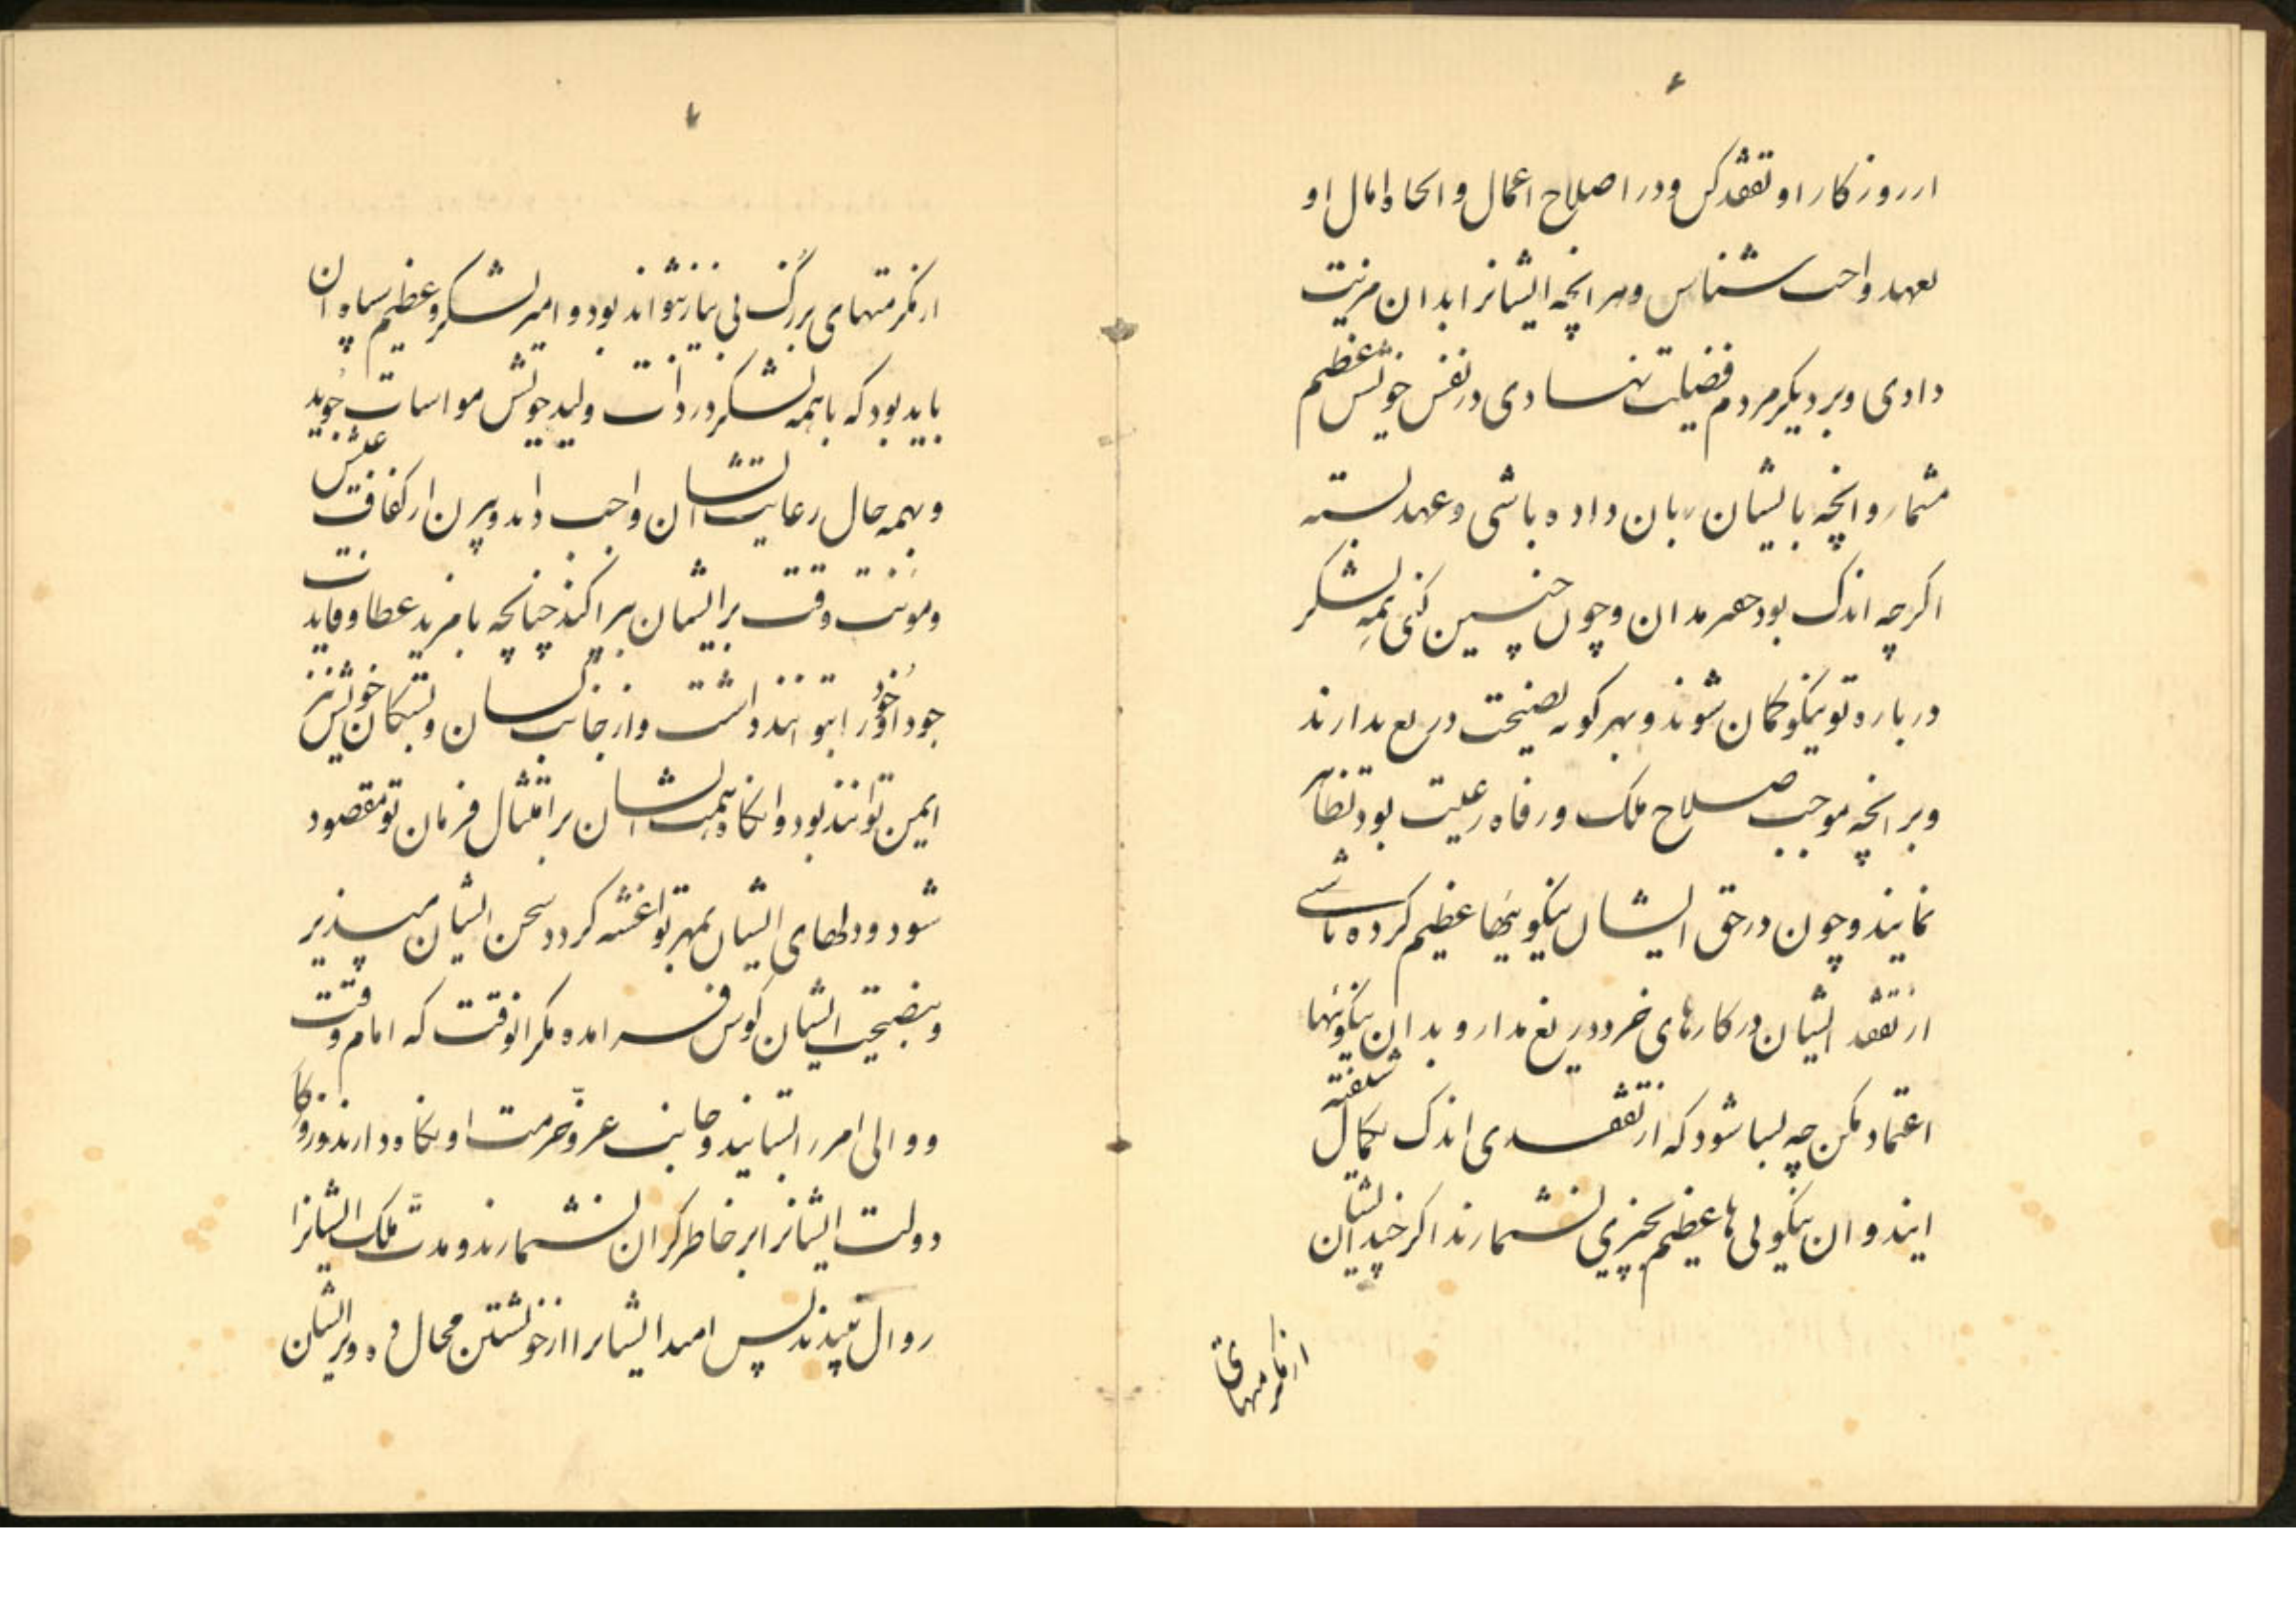 از روزكار او تفقد كن و در اصلاح اعمال و انجاح امال او
تعهد واجب شناس و هر انچه ایشانرا بدان مزیت
دادی و بر دیكر مردم فضیلت نهادی در نفس خویش عظیم
مشمار و انچه با ایشان زبان داده باشی و عهد بسته
اكرچه اندك بود حقیر مدان و چون چنین كنی همه لشكر
درباره تو نیكو كمان شوند و بهر كونه نصیحت دریغ ندارند
و بر انچه موجب صلاح ملك و رفاه رعیت بود تظاهر
نمایند و چون در حق ایشان نیكوییها عظیم كرده باشی
از تفقد ایشان در كارهای خرد دریغ مدار و بدان نیكوئیها
اعتماد مكن چه بسا شود كه از تفقدی اندك بكمال شیفته
ایند و ان نیكویی ها عظیم بچیزی نشمارند اكرچند ایشان
از مكرمتهای
از مكرمتهای بزرك بی نیاز نتواند بود و امیر لشكر و عظیم سپاه ان
باید بود كه با همه لشكر در ذات ولید خویش مواسات جوید
و بهمه حال رعایت ایشان واجب داند و بیرون از كفاف عیش
و مؤنت وقت بر ایشان بپراكند چنانچه با مزید عطا و فایدت
خود را توانند داشت و از جانب كسان و بستكان خویش نیز
ایمن توانند بود و انكاه همت ایشان بر امتثال فرمان تو مقصود
شود و دلهای ایشان بمهر تو اغشته كردد سخن ایشان میپذیر
و بنصیحت ایشان كوش فرامده مكر انوقت كه امام وقت
و والی امر را بستایند و جانب عز و حرمت او نكاه دارند و روزكار
دولت ایشانرا بر خاطر كران نشمارند و مدت ملك ایشانرا
زوال نپسندند پس امید ایشانرا از خویشتن مجال ده و بر ایشان